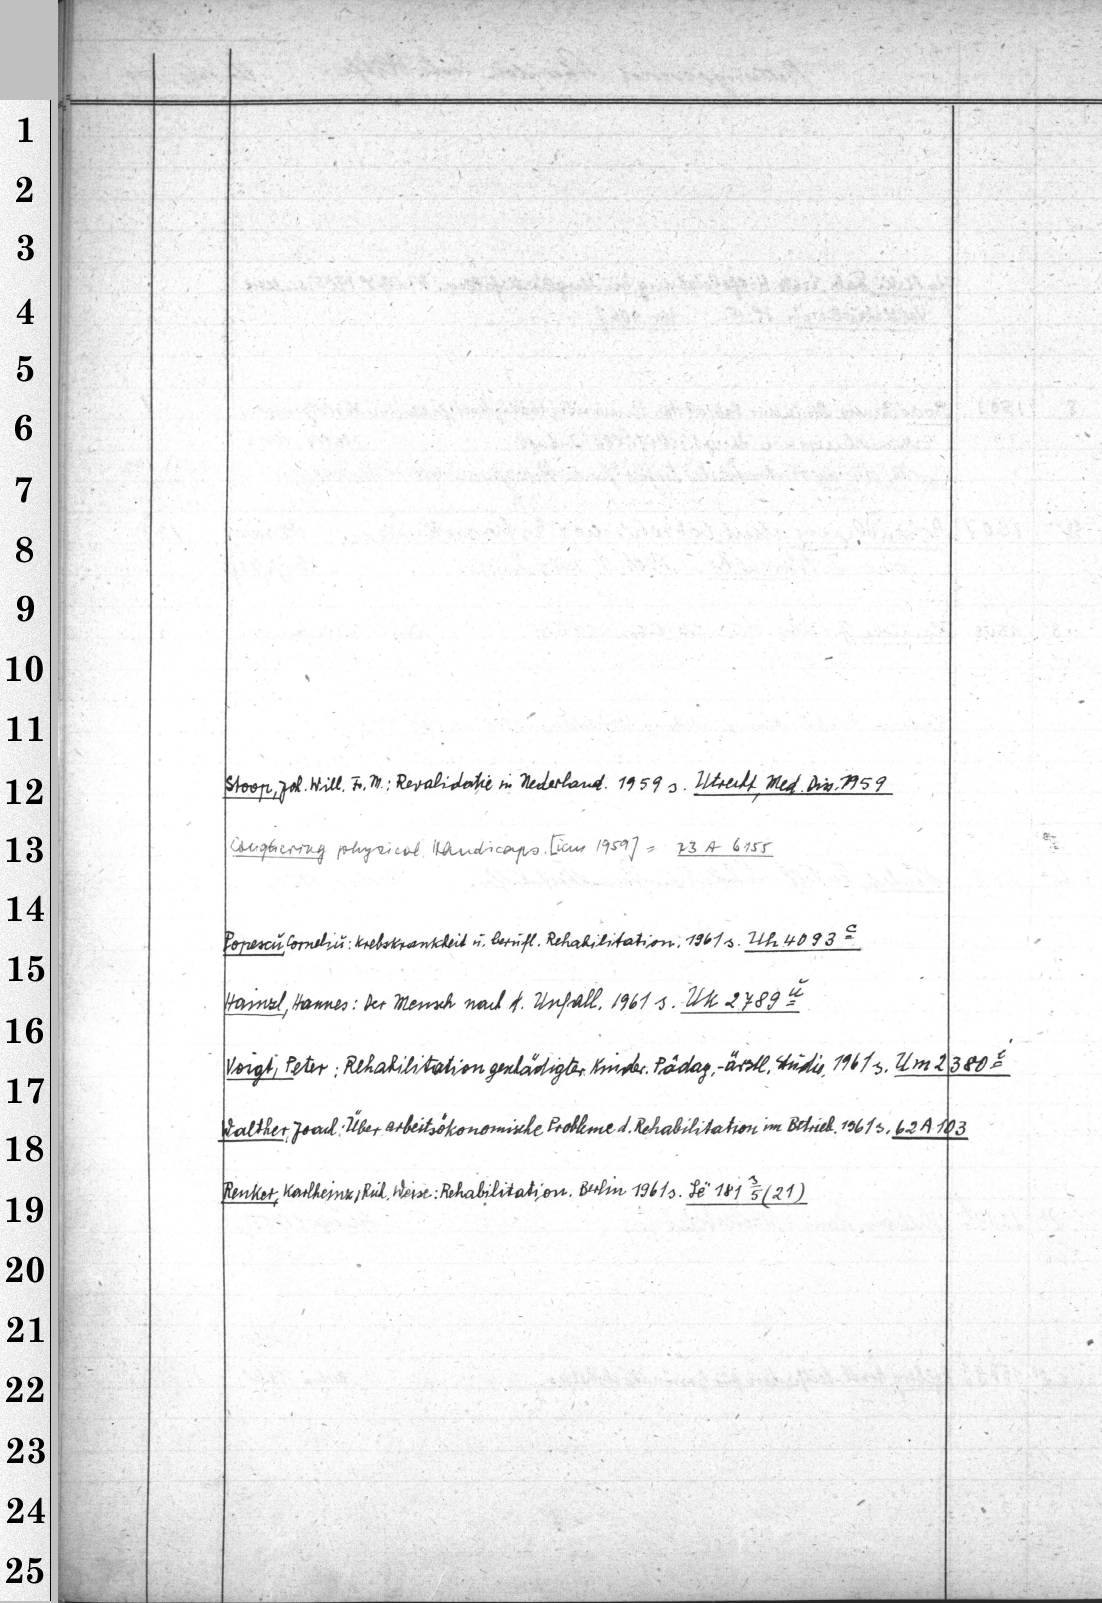 1
2
3
4
5
6
7
8
9
10
11
12
Stoop, Joh. Will. Fr. M.: Revalidatie in Nederland. 1959 s. Utrecht, Med. Diss. 1959
13
Conquering physical Handicaps. [um 1959] = 23 A 6155
14
Popescu, Corneliŭ: Krebskrankheit ŭ. berŭfl. Rehabilitation. 1961 s. Uh 4093 c
15
Hainzl, Hannes: Der Mensch nach d. Unfall. 1961 s. Uk 2789 ŭ
16
Voigt, Peter: Rehabilitation geschädigter Kinder. Pädag.-ärztl. Stŭdie. 1961 s. Um 2380 i
17
Walther, Joach.: Über arbeitsökonomische Probleme d. Rehabilitation im Betrieb. 1961 s. 62 A 103
18
Renker, Karlheinz, Rŭd. Weise: Rehabilitation. Berlin 1961 s. 181 3/5 (21)
19
20
21
22
23
24
25